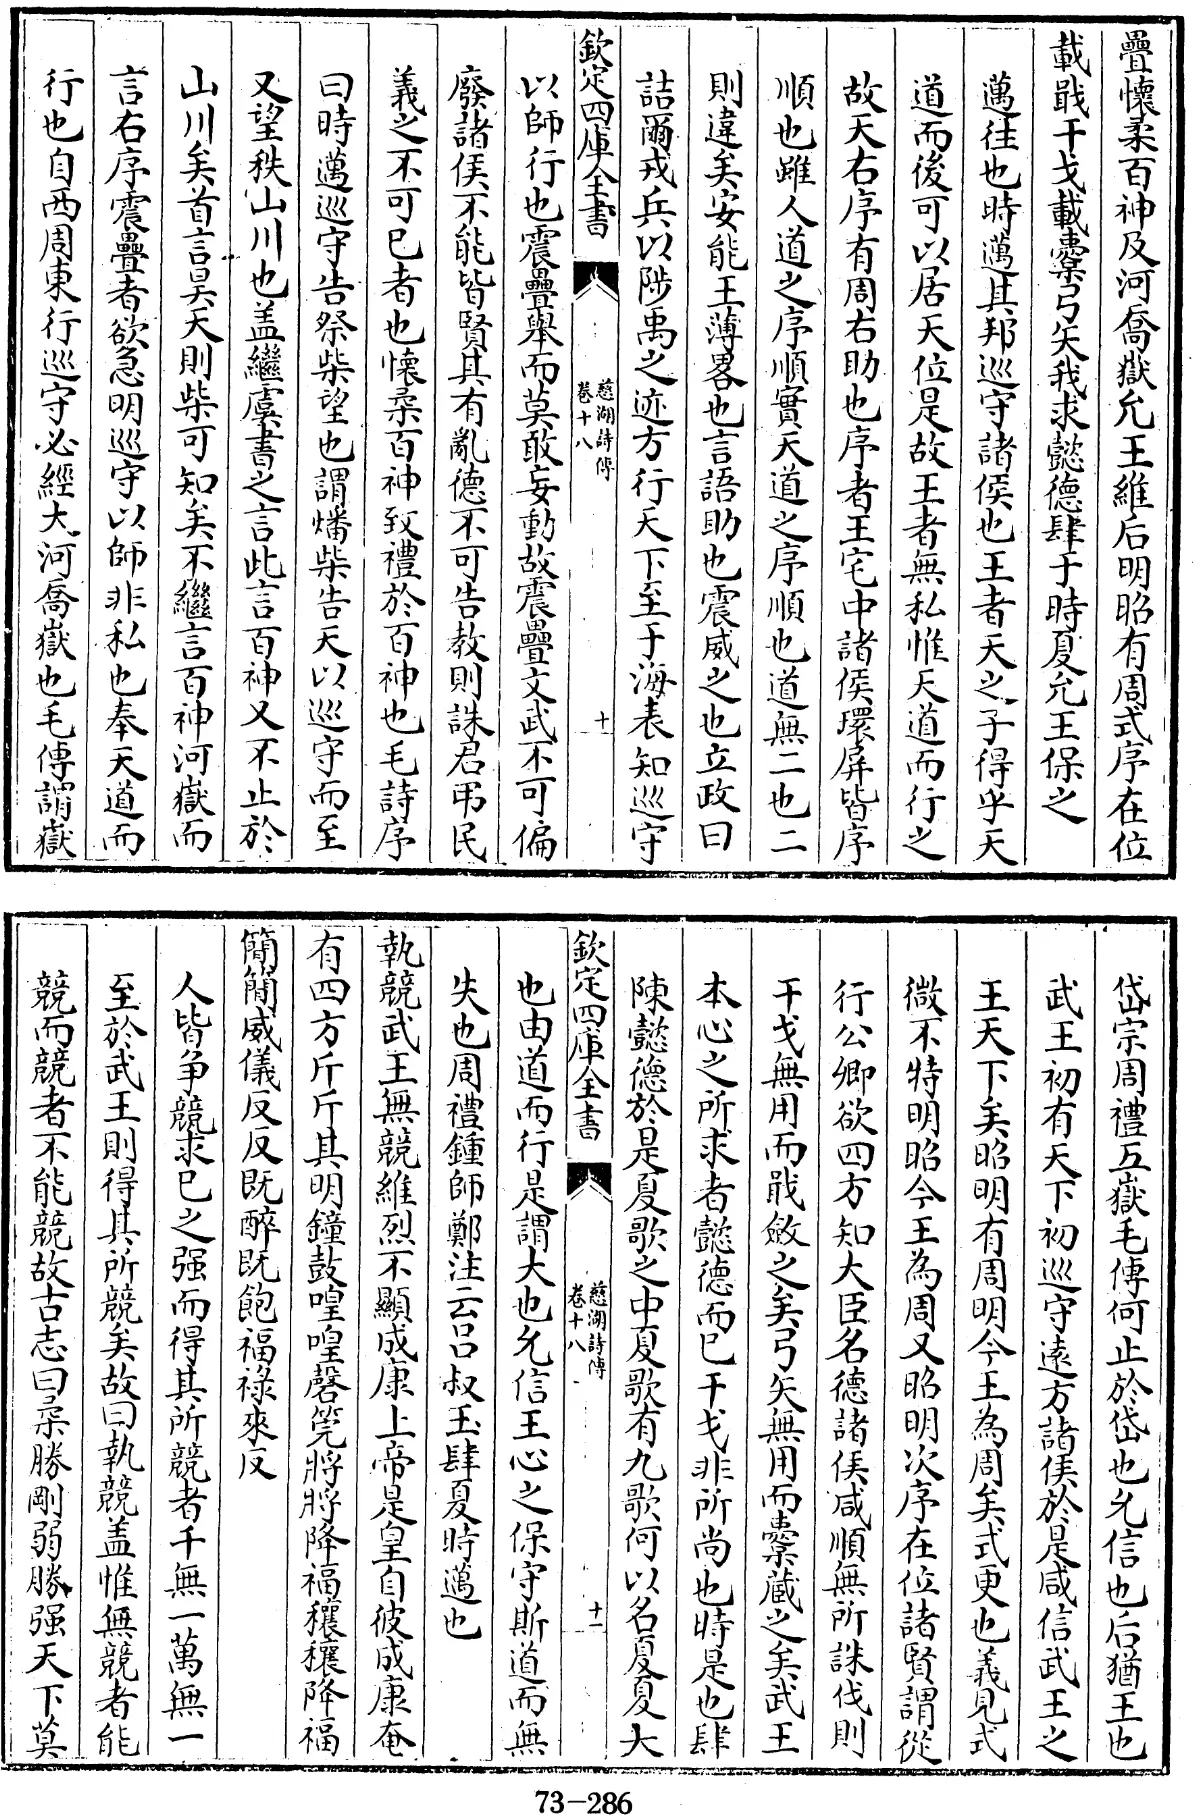 疊懷柔百神及河喬嶽允王維后明昭有周式序在位
載戢干戈載櫜弓矢我求懿德肆于時夏允王保之
邁往也時邁其邦巡守諸侯也王者天之子得乎天
道而後可以居天位是故王者無私惟天道而行之
故天右序有周右助也序者王宅中諸侯環屏皆序
順也雖人道之序順實天道之序順也道無二也二
則違矣安能王薄畧也言語助也震威之也立政曰
詰爾戎兵以陟禹之迹方行天下至于海表知巡守
欽定四庫全書
慈湖詩傳
卷十八
十
以師行也震疊舉而莫敢妄動故震疊文武不可偏
廢諸侯不能皆賢其有亂德不可告教則誅君弔民
義之不可已者也懷柔百神致禮於百神也毛詩序
曰時邁巡守告祭柴望也謂燔柴告天以巡守而至
又望秩山川也盖繼虞書之言此言百神又不止於
山川矣首言昊天則柴可知矣不繼言百神河嶽而
言右序震疊者欲急明巡守以師非私也奉天道而
行也自西周東行巡守必經大河喬嶽也毛傳謂嶽
岱宗周禮五嶽毛傳何止於岱也允信也后猶王也
武王初有天下初巡守遠方諸侯於是咸信武王之
王天下矣昭明有周明今王為周矣式更也義見式
微不特明昭今王為周又昭明次序在位諸賢謂從
行公卿欲四方知大臣名德諸侯咸順無所誅伐則
干戈無用而戢斂之矣弓矢無用而櫜藏之矣武王
本心之所求者懿德而已干戈非所尚也時是也肆
陳懿德於是夏歌之中夏歌有九歌何以名夏夏大
欽定四庫全書
慈湖詩傳
卷十八
十一
也由道而行是謂大也允信王心之保守斯道而無
失也周禮鍾師鄭注云呂叔玉肆夏時邁也
執競武王無競維烈不顯成康上帝是皇自彼成康奄
有四方斤斤其明鐘鼓喤喤磬筦將將降福穰穰降福
簡簡威儀反反既醉既飽福祿來反
人皆争競求已之强而得其所競者千無一萬無一
至於武王則得其所競矣故曰執競盖惟無競者能
競而競者不能競故古志曰柔勝剛弱勝强天下莫
73-286